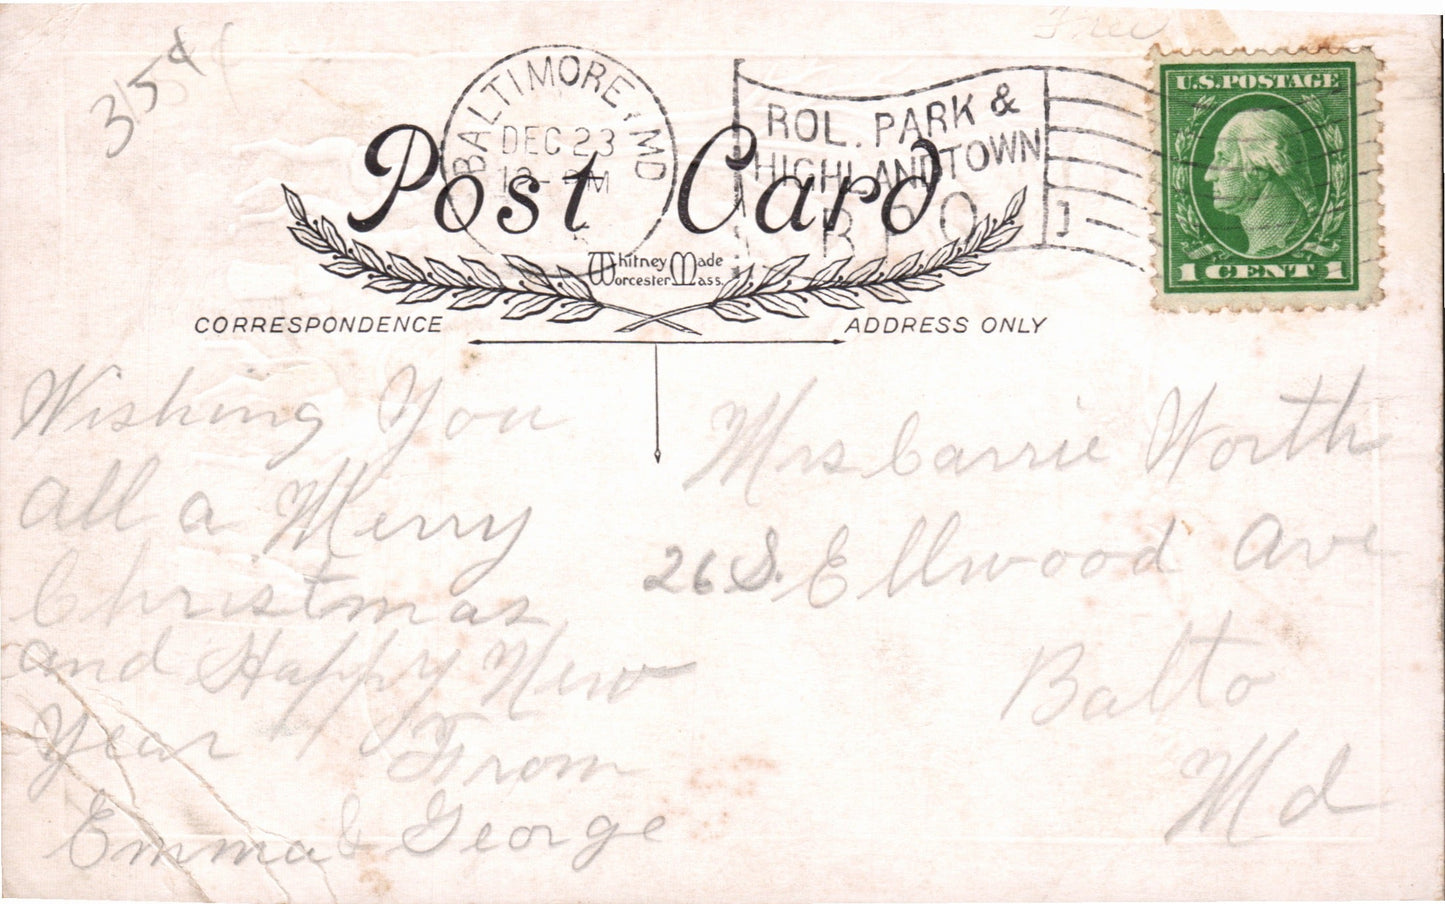 315¢
Free
BALTIMORE, MD
DEC 23
ROL. PARK &
HIGHLANDTOWN
R P O
1
U.S. POSTAGE
1 CENT 1
Post Card
Whitney Made
Worcester Mass.
CORRESPONDENCE
ADDRESS ONLY
Wishing You
all a Merry
Christmas
and Happy New
Year From
Emma & George
Mrs Carrie Worth
26 S. Ellwood Ave
Balto
Md